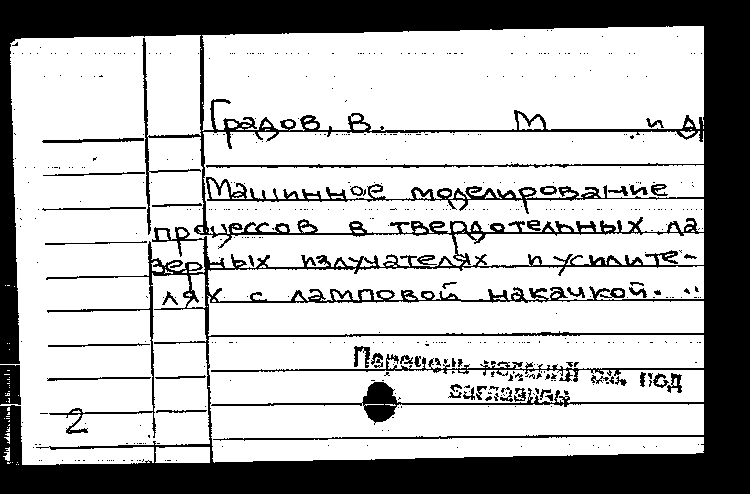 Градов, В. М и др
Машинное моделирование
процессов в твердотельных ла
зерных излучателях и усилите-
лях с ламповой накачкой. ..
Перечень изданий см. под
заглавием
2